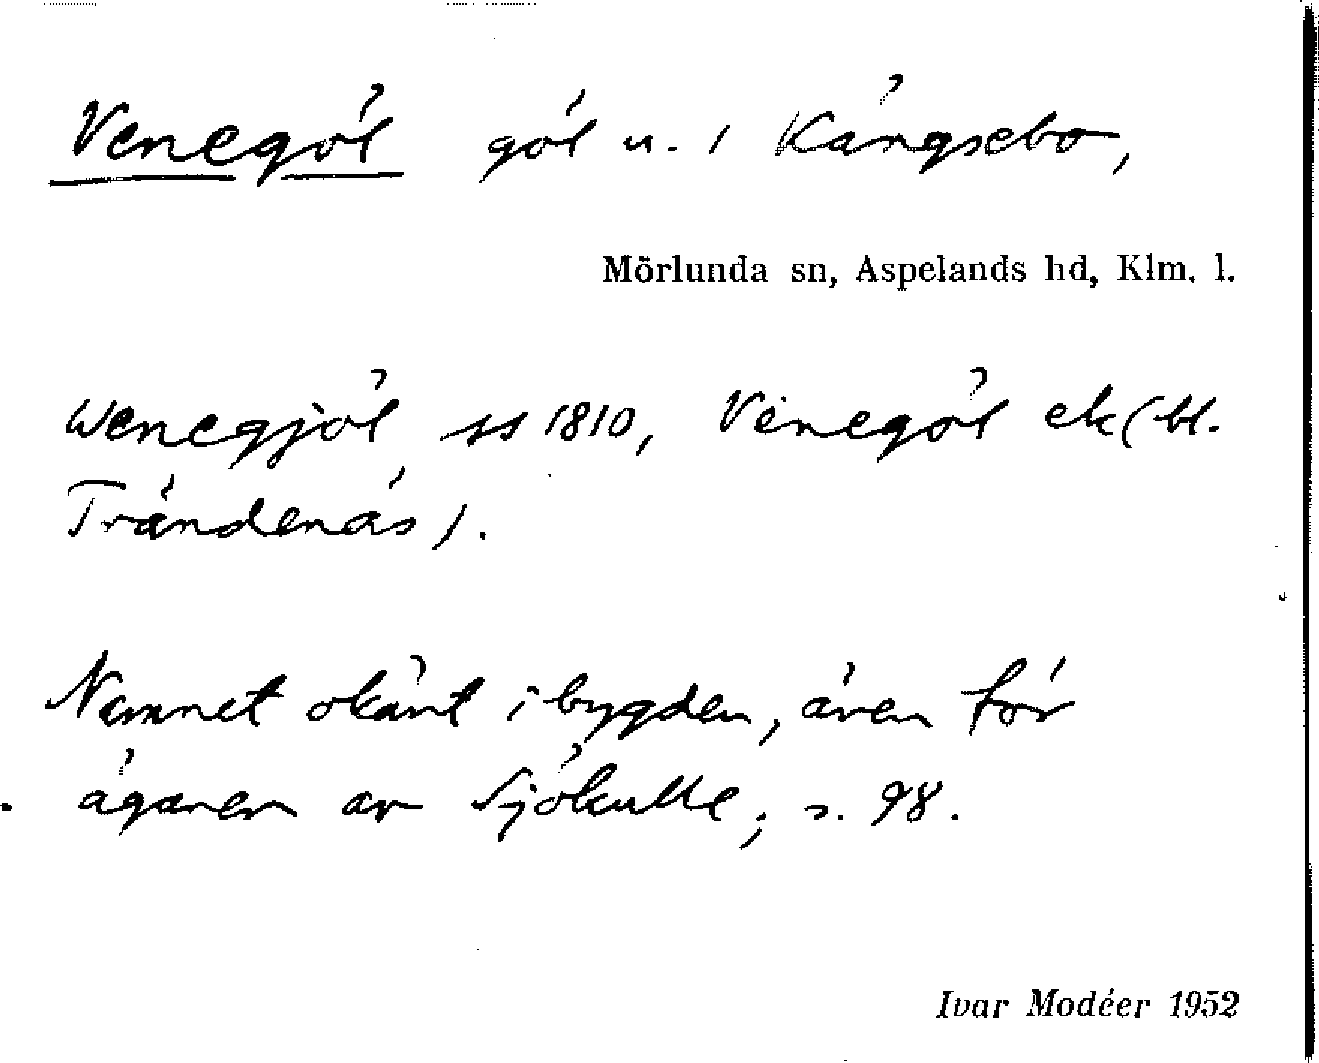 Venegöl göl u. / Kängsebo,
Mörlunda sn, Aspelands hd, Klm. l.
Wenegjöl ss 1810, Venegöl ek (bl.
Trändenäs).
Namnet okänt i bygden, även för
ägaren av Sjökulle, s. 98.
Ivar Modéer 1952